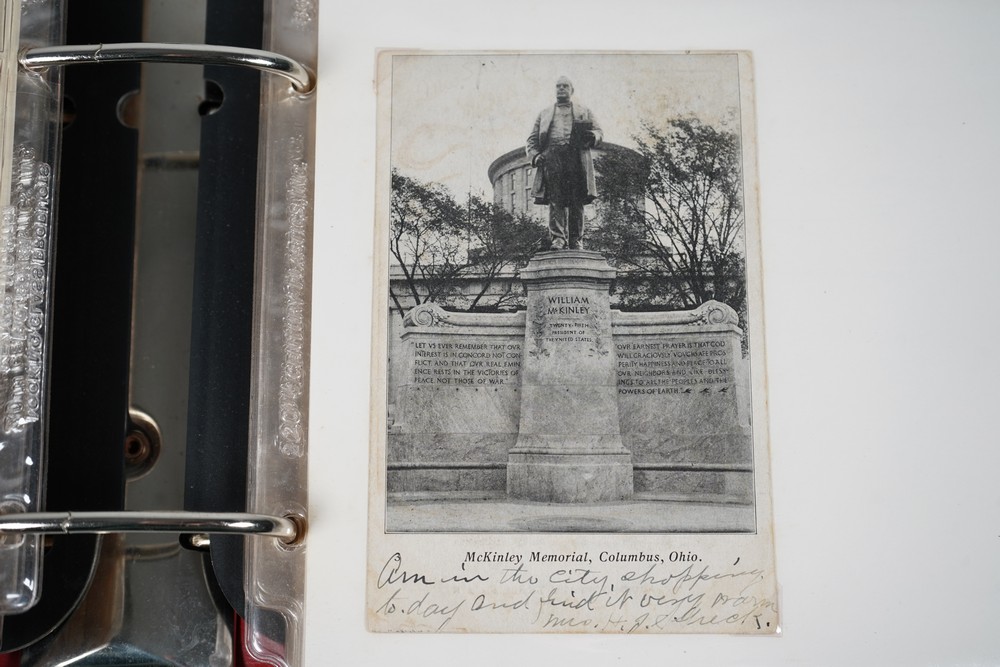 WILLIAM
McKINLEY
TWENTY-FIFTH
PRESIDENT OF
THE UNITED STATES
"LET VS EVER REMEMBER THAT OVR
INTEREST IS IN CONCORD NOT CON
FLICT AND THAT OVR REAL EMIN
ENCE RESTS IN THE VICTORIES OF
PEACE NOT THOSE OF WAR."
"OVR EARNEST PRAYER IS THAT GOD
WILL GRACIOVSLY VOVCHSAFE PROS
PERITY HAPPINESS AND PEACE TO ALL
OVR NEIGHBORS AND LIKE BLESS
INGS TO ALL THE PEOPLES AND THE
POWERS OF EARTH."
McKinley Memorial, Columbus, Ohio.
Am in the city shopping
to.day and find it very warm
Mrs. H.